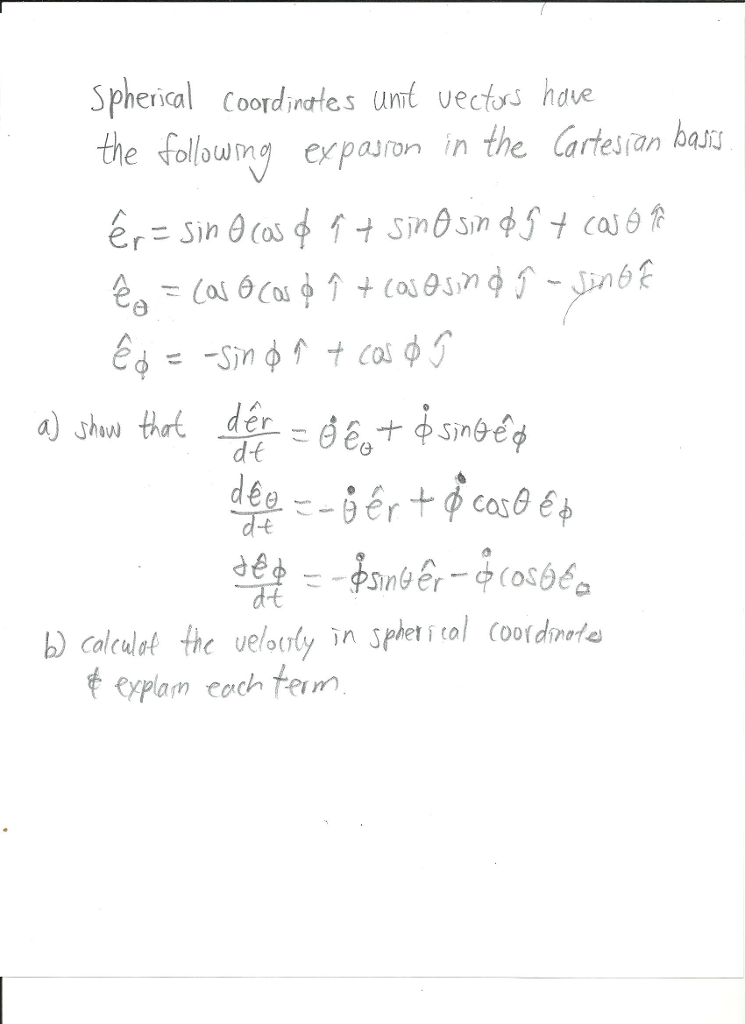 Spherical coordinates unit vectors have
the following expasion in the Cartesian basis.
êr = sin θ cos ϕ î + sin θ sin ϕ ĵ + cos θ k̂
êθ = cos θ cos ϕ î + cos θ sin ϕ ĵ - sin θ k̂
êϕ = -sin ϕ î + cos ϕ ĵ
a) show that dêr/dt = θ̇ êθ + ϕ̇ sin θ êϕ
dêθ/dt = -θ̇ êr + ϕ̇ cos θ êϕ
dêϕ/dt = -ϕ̇ sin θ êr - ϕ̇ cos θ êθ
b) calculat the velocity in spherical coordinates
& explain each term.